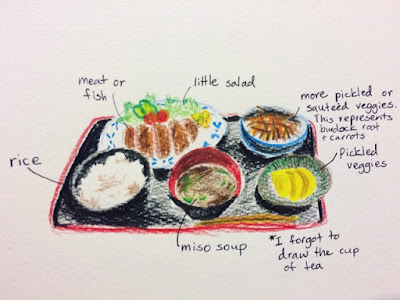 meat or
fish
little salad
more pickled or
sauteed veggies.
This represents
burdock root
+ carrots
rice
Pickled
veggies
miso soup
*I forgot to
draw the cup
of tea